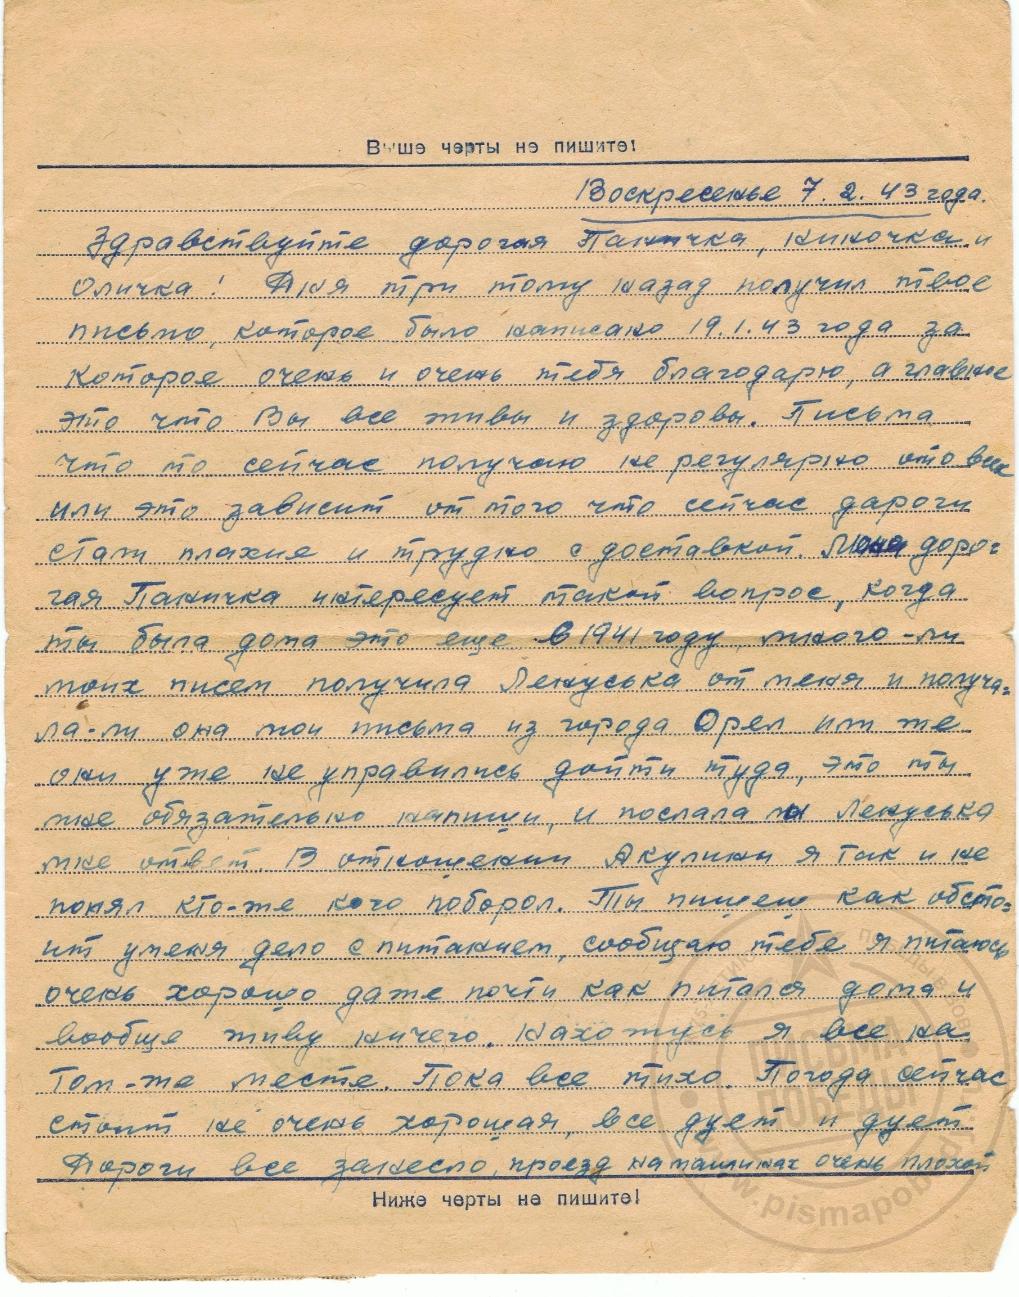 Выше черты не пишите!
Воскресенье 7. 2. 43 года.
Здравствуйте дорогая Паничка, Ниночка и
Оличка! Дня три тому назад получил твое
письмо, которое было написано 19.1.43 года за
которое очень и очень тебя благодарю, а главное
это что Вы все живы и здоровы. Письма
что то сейчас получаю не регулярно ото всех
или это зависит от того что сейчас дароги
стали плахие и трудно с доставкой. Меня доро-
гая Паничка интересует такой вопрос, когда
ты была дома это еще в 1941 году, много-ли
моих писем получила Ленуська от меня и получа-
ла-ли она мои письма из города Орел или же
они уже не управились дойти туда, это ты
мне обязательно напиши, и послала ли Ленуська
мне ответ. В отношении Акулины я так и не
понял кто-же кого поборол. Ты пишеш как обсто-
ит уменя дело с питанием, сообщаю тебе я питаюсь
очень хорошо даже почти как питался дома и
вообще живу ничего. Нахожусь я все на
том-же месте. Пока все тихо. Погода сейчас
стоит не очень хорошая, все дует и дует
Дороги все занесло, проезд на машинах очень плохой
Ниже черты не пишите!
ПИСЬМА
ПОБЕДЫ